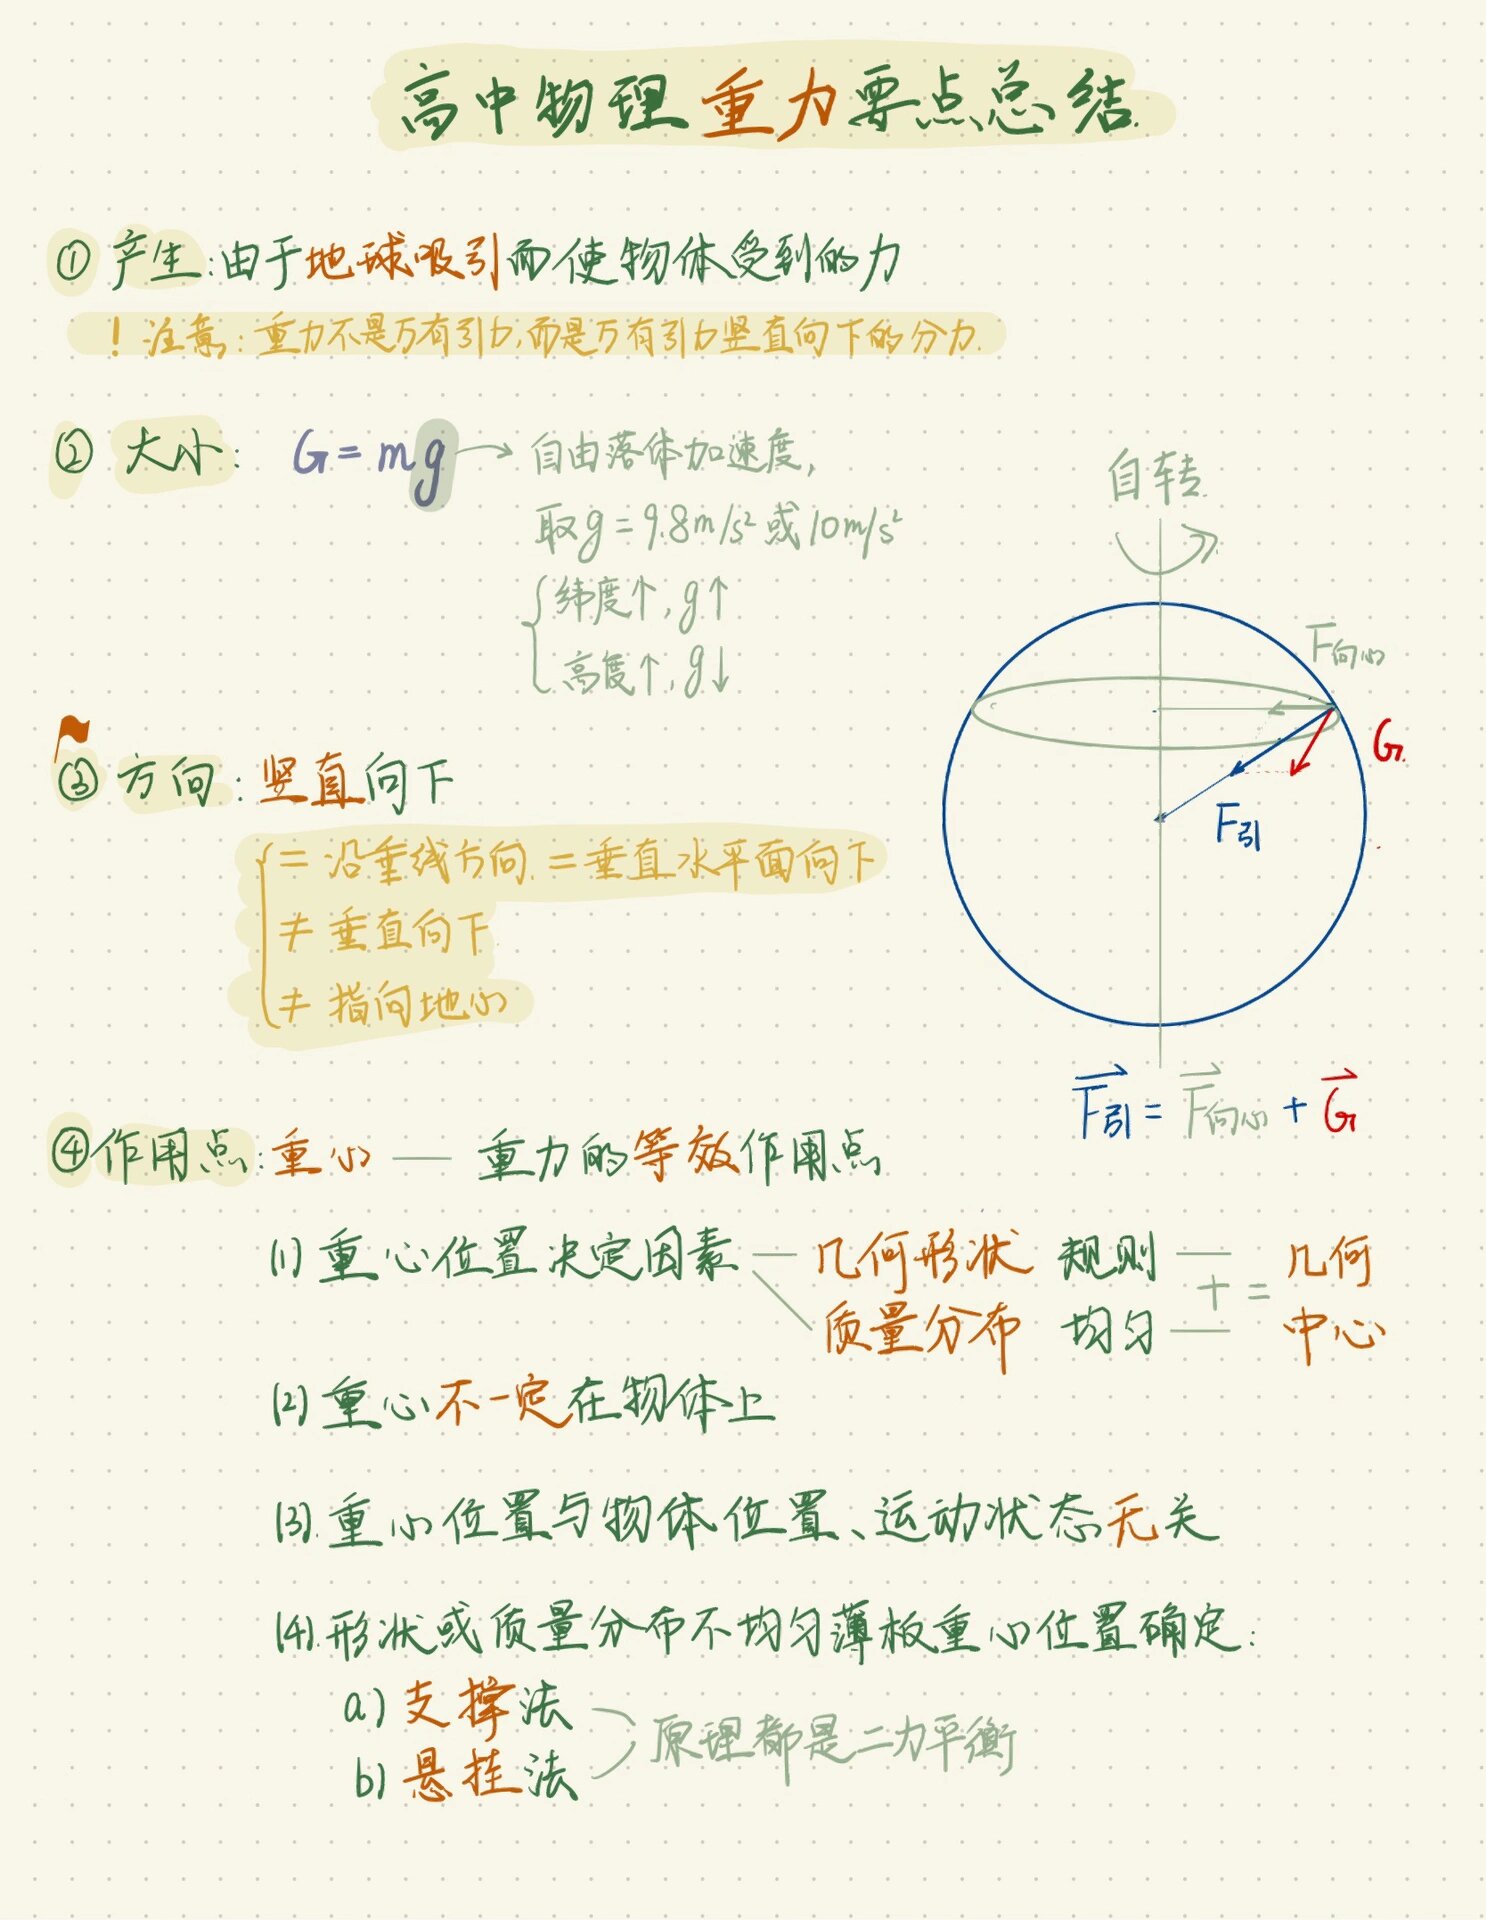 高中物理重力要点总结.
① 产生:由于地球吸引而使物体受到的力
! 注意:重力不是万有引力,而是万有引力竖直向下的分力.
② 大小: G=mg → 自由落体加速度,
取g=9.8m/s²或10m/s²
纬度↑,g↑
高度↑,g↓
自转
F向心
G
F引
F引=F向心+G
③ 方向:竖直向下
= 沿垂线方向.=垂直水平面向下
≠ 垂直向下
≠ 指向地心
④作用点:重心 — 重力的等效作用点
(1) 重心位置决定因素 — 几何形状 规则 — 几何
质量分布 均匀 — + = 中心
(2) 重心不一定在物体上
(3).重心位置与物体位置、运动状态无关
(4).形状或质量分布不均匀薄板重心位置确定:
a) 支撑法
b) 悬挂法
原理都是二力平衡